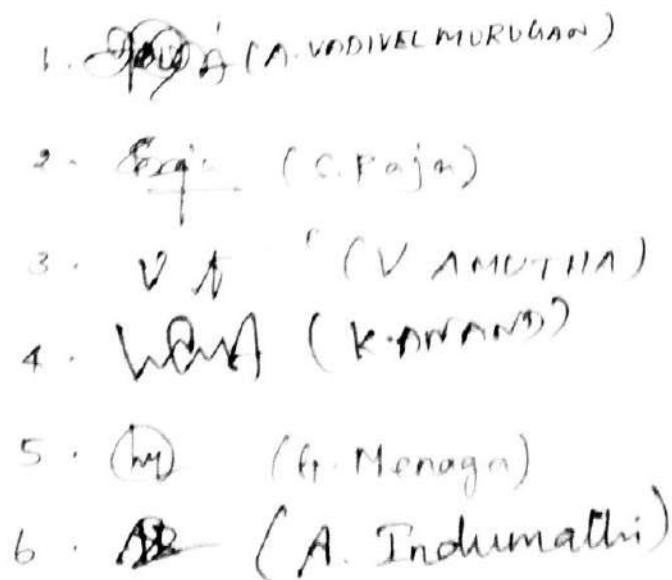 1. (A. VADIVELMURUGAN)
2. (S. Raja)
3. V A (V AMUTHA)
4. (K. ANAND)
5. (G. Menaga)
6. (A. Indumathi)